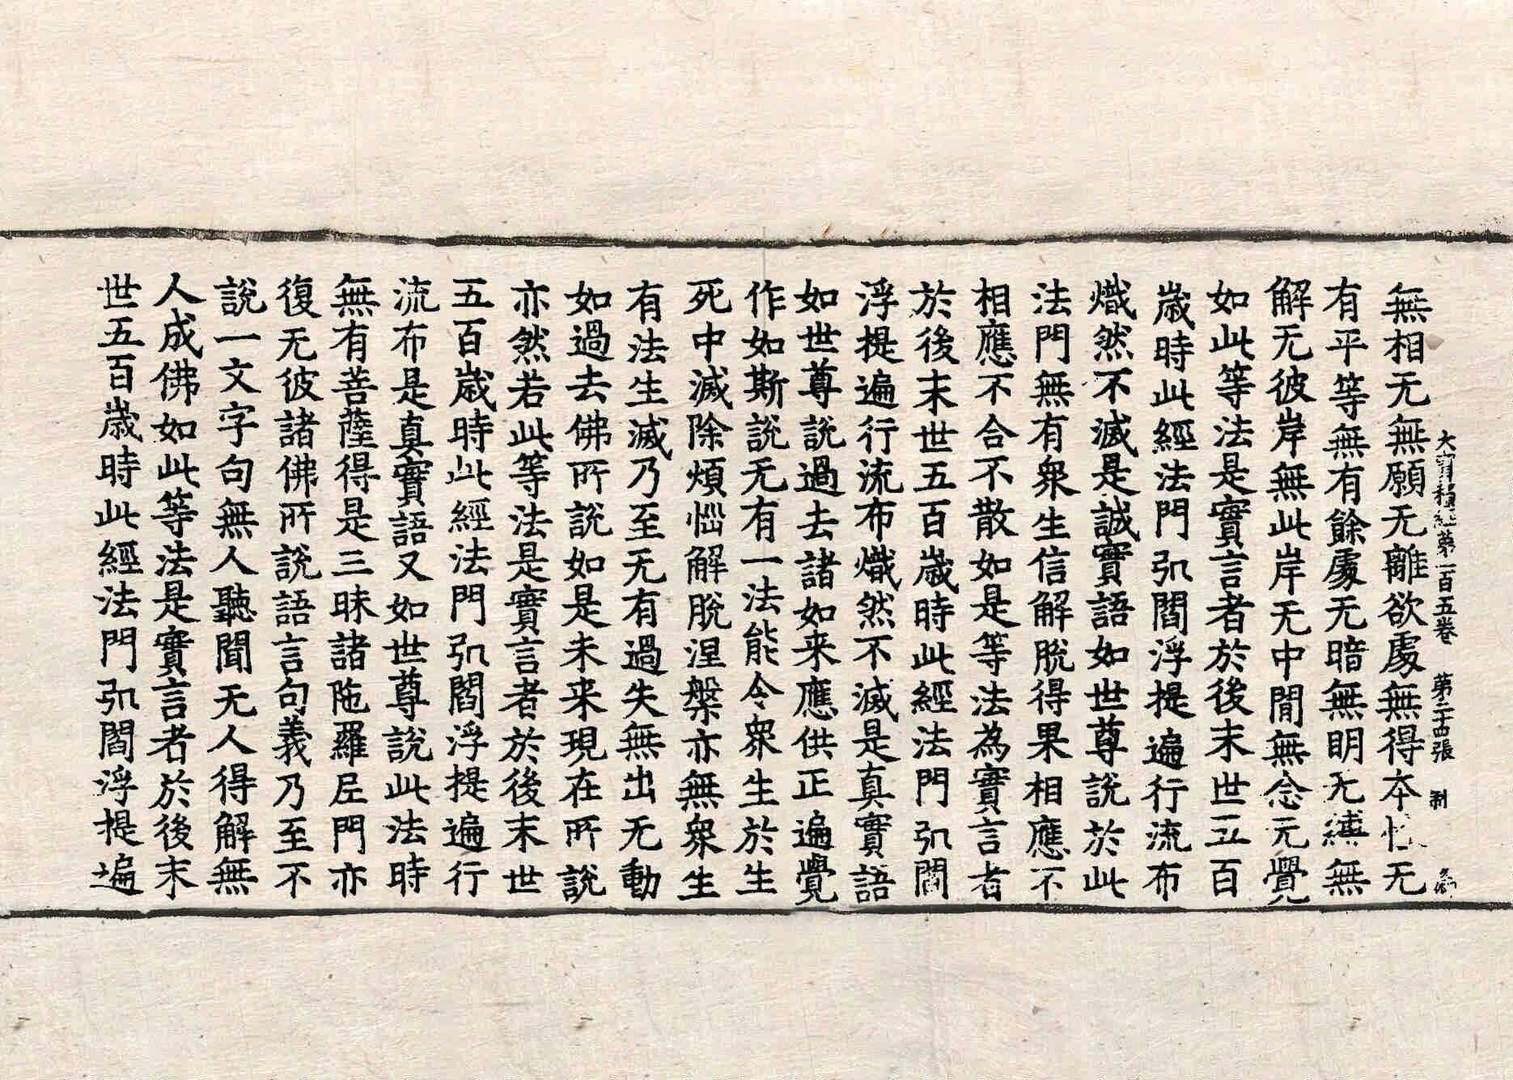 大寶積經第一百五卷 第二十四張 制
無相无無願无離欲處無得本性无
有平等無有餘處无暗無明无縛無
解无彼岸無此岸无中間無念元覺
如此等法是實言者於後末世五百
歲時此經法門於閻浮提遍行流布
熾然不滅是誠實語如世尊說於此
法門無有衆生信解脫得果相應不
相應不合不散如是等法為實言者
於後末世五百歲時此經法門於閻
浮提遍行流布熾然不滅是真實語
如世尊說過去諸如来應供正遍覺
作如斯說无有一法能令衆生於生
死中滅除煩惱解脫涅槃亦無衆生
有法生滅乃至无有過失無出无動
如過去佛所說如是未来現在所說
亦然若此等法是實言者於後末世
五百歲時此經法門於閻浮提遍行
流布是真實語又如世尊說此法時
無有菩薩得是三昧諸陁羅尼門亦
復无彼諸佛所說語言句義乃至不
說一文字句無人聽聞无人得解無
人成佛如此等法是實言者於後末
世五百歲時此經法門於閻浮提遍